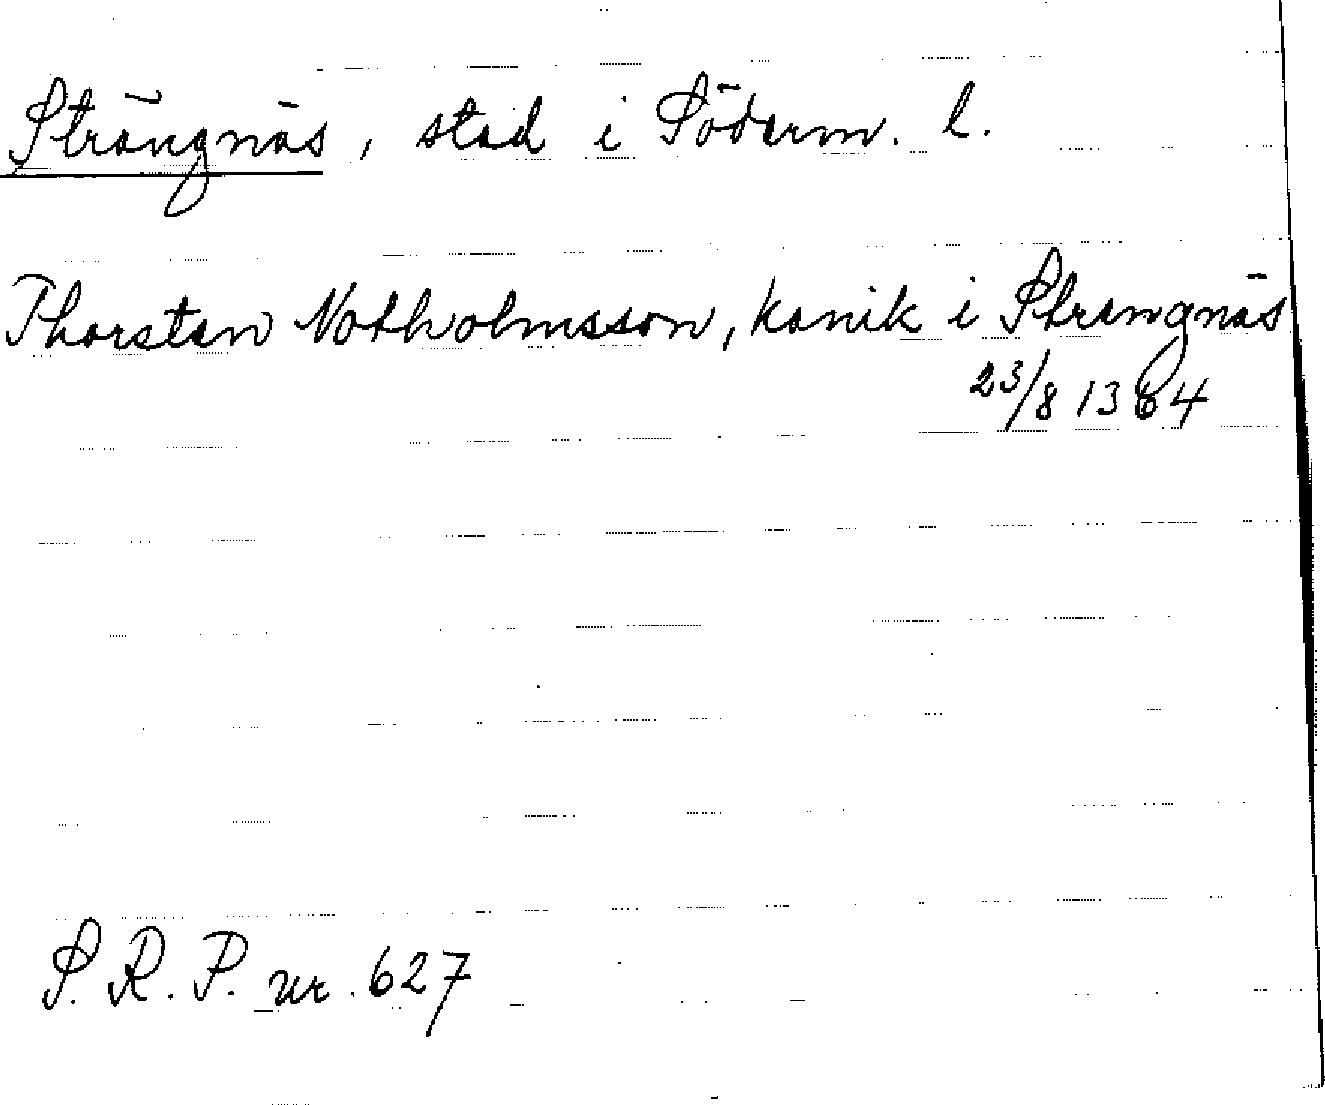 Strängnäs, stad i Söderm. l.
Thorsten Notholmsson, kanik i Strengnäs
23/8 1364
S. R. P. nr. 627